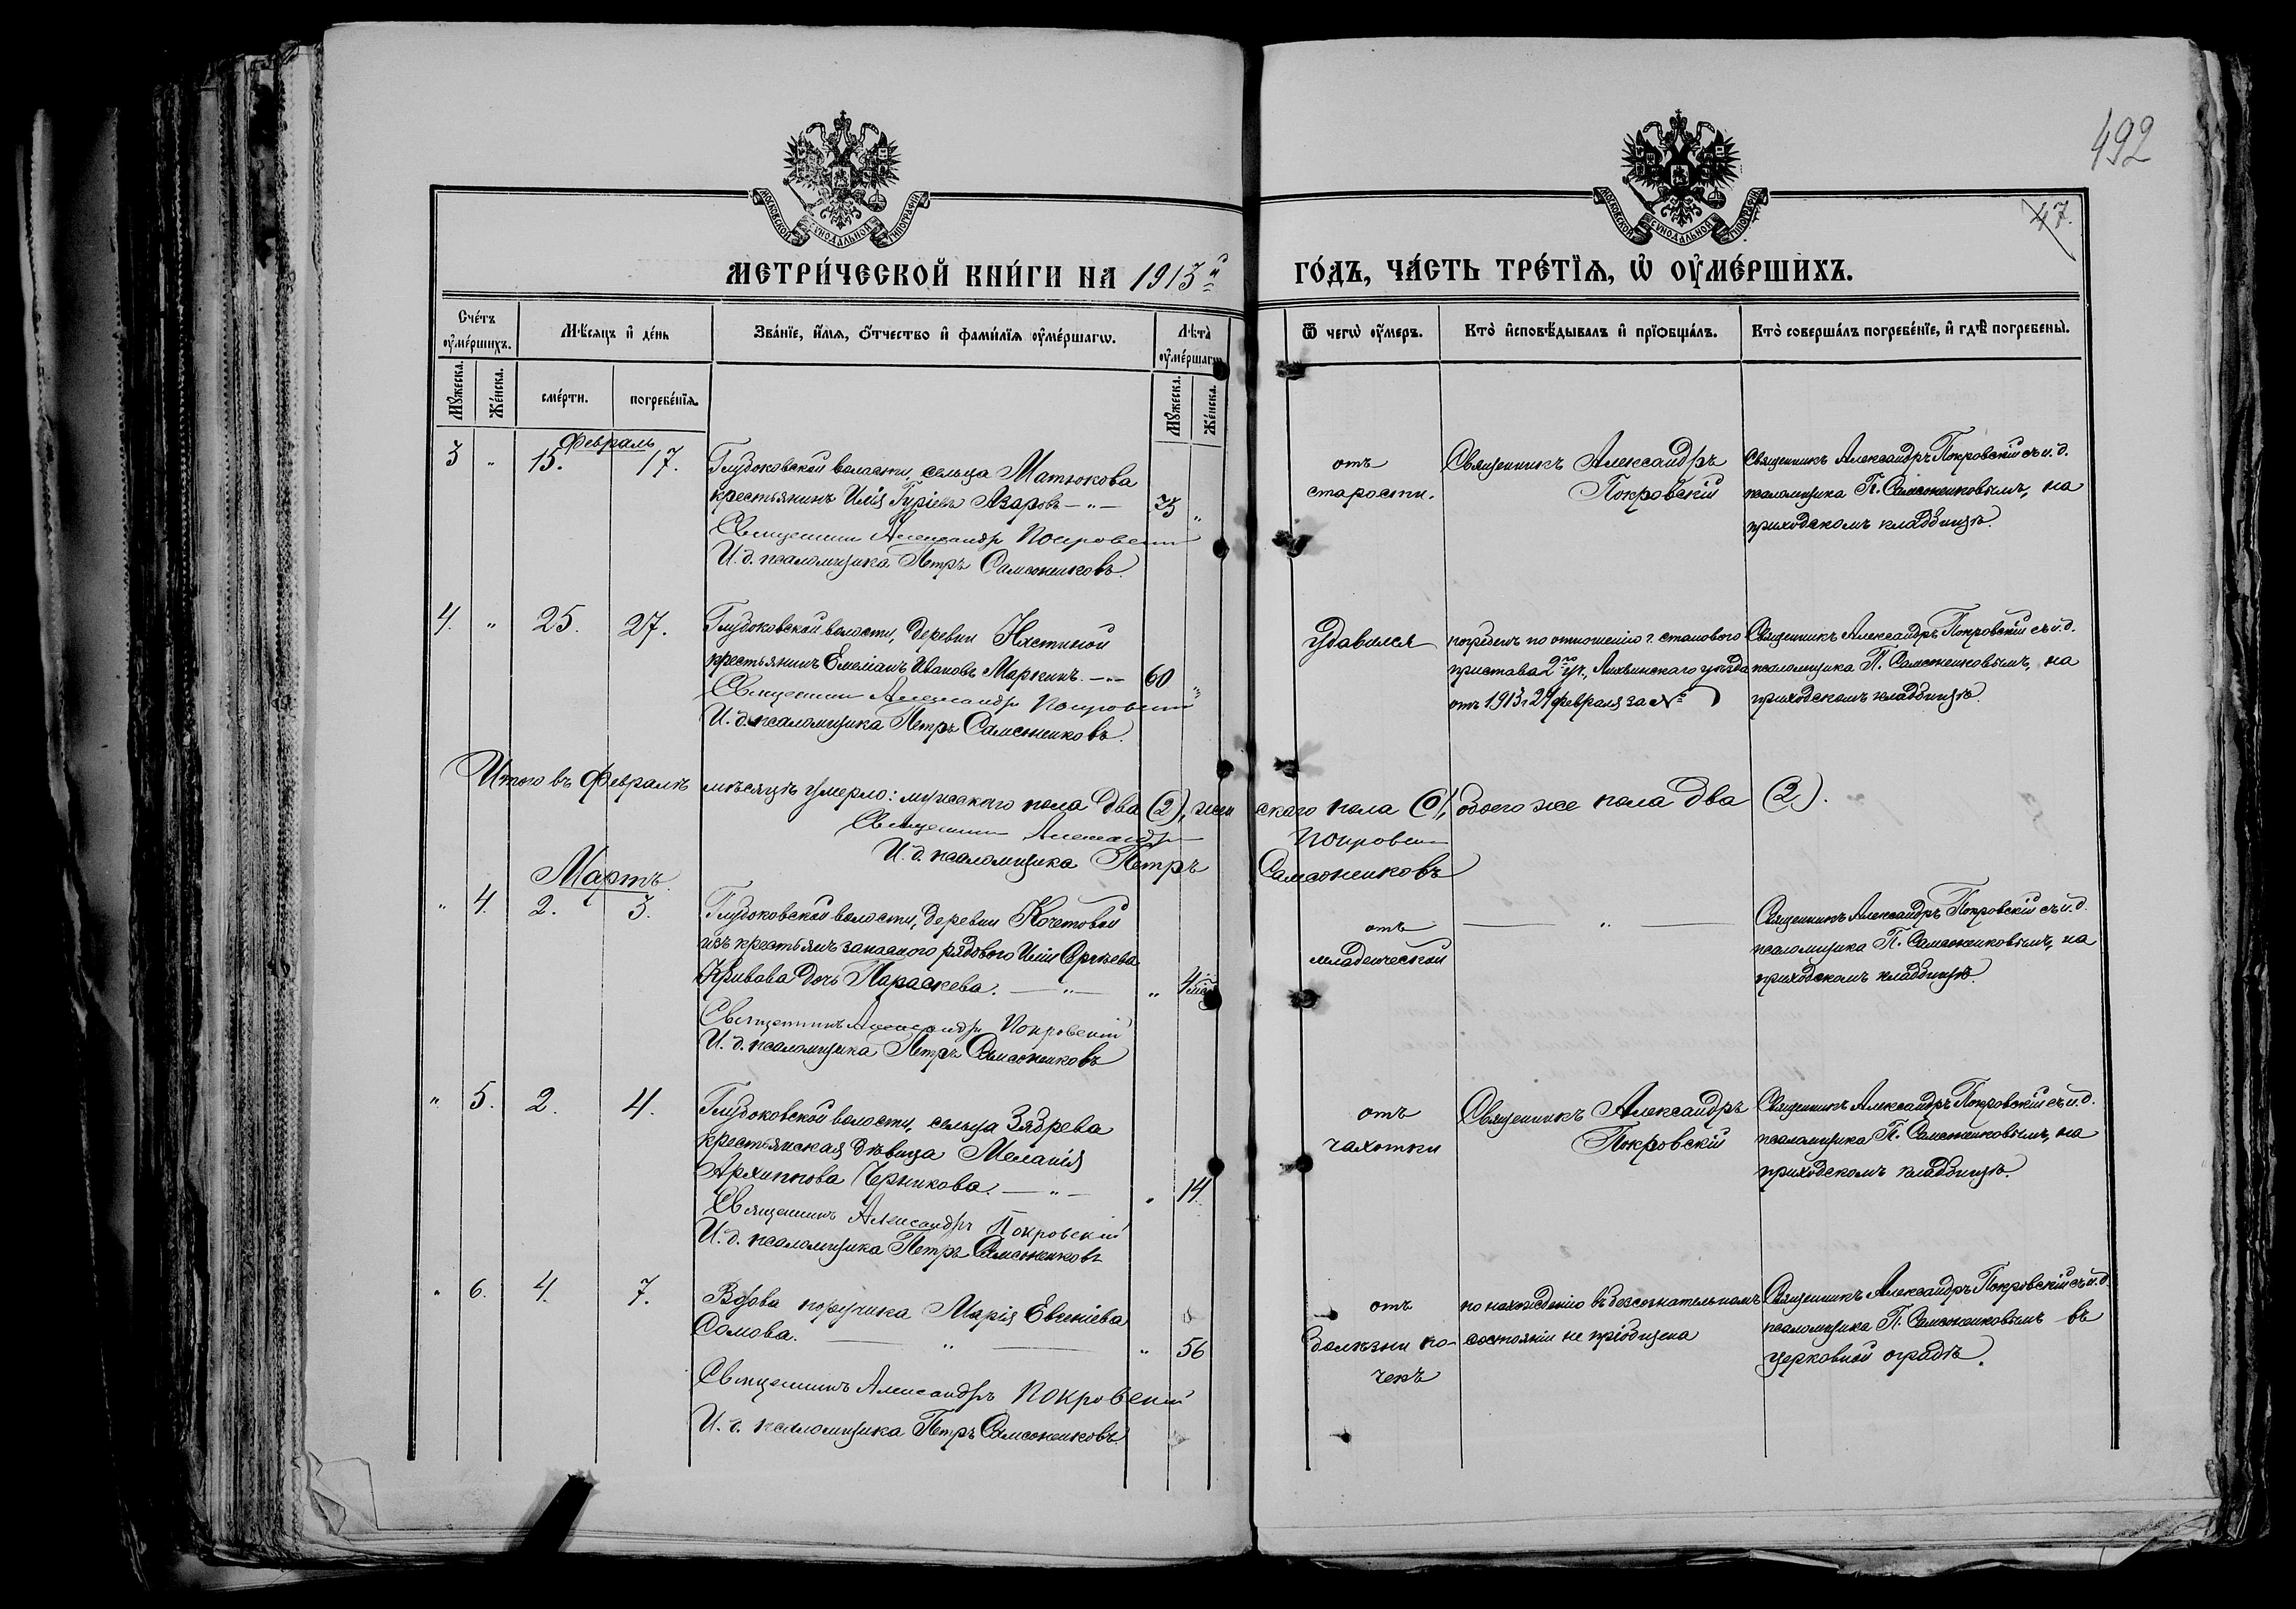 492
47.
МОСКОВСКОЙ СѴНОДАЛЬНОЙ ТИПОГРАФІИ
МОСКОВСКОЙ СѴНОДАЛЬНОЙ ТИПОГРАФІИ
МЕТРИ́ЧЕСКОЙ КНИ́ГИ НА 1913й ГО́ДЪ, ЧА́СТЬ ТРЕ́ТЇѦ, Ѡ҆ ОУ҆МЕ́РШИХЪ.
Сче́тъ оу҆ме́ршихъ.
Мѣ́сяцъ и҆ де́нь
Зва́нїе, и҆́мѧ, ѻ҆́тчество и҆ фами́лїѧ оу҆ме́ршагѡ.
Лѣта̀ оу҆ме́ршагѡ
Ѿ чегѡ̀ оу҆́меръ.
Кто̀ и҆сповѣ́дывалъ и҆ прїѻбща́лъ.
Кто̀ соверша́лъ погребе́нїе, и҆ гдѣ̀ погребены̀.
Мꙋ́жеска.
Же́нска.
сме́рти.
погребе́нїѧ.
Мꙋ́жеска.
Же́нска.
Февраль
3 " 15. 17.
Глубоковской волости, сельца Матюкова
крестьянинъ Илія Гуріевъ Азаровъ — " —
"
Священникъ Александръ Покровскій
И. д. псаломщика Петръ Самсоненковъ.
отъ
старости.
Священникъ Александръ
Покровскій
Священникъ Александръ Покровскій съ и. д.
псаломщика П. Самсоненковымъ, на
приходскомъ кладбищѣ.
4. " 25. 27.
Глубоковской волости, деревни Настиной
крестьянинъ Емеліанъ Ивановъ Маркинъ. — " — 60 "
Священникъ Александръ Покровскій
И. д. псаломщика Петръ Самсоненковъ.
Удавился
погребенъ по отношенію г. становаго
пристава 2го уч., Лихвинскаго уѣзда
отъ 1913 г. февраля за №
Священникъ Александръ Покровскій съ и. д.
псаломщика П. Самсоненковымъ, на
приходскомъ кладбищѣ.
Итого въ Февралѣ мѣсяцѣ умерло: мужескаго пола два (2), женскаго пола (0), обоего же пола два (2).
Священникъ Александръ Покровскій
И. д. псаломщика Петръ Самсоненковъ
Мартъ.
" 4. 2. 3.
Глубоковской волости, деревни Кочетовой
изъ крестьянъ запаснаго рядового Иліи Сергѣева
Кривова дочь Параскева. — " — " 4 мѣс.
Священникъ Александръ Покровскій
И. д. псаломщика Петръ Самсоненковъ
отъ
младенческой
— " —
Священникъ Александръ Покровскій съ и. д.
псаломщика П. Самсоненковымъ, на
приходскомъ кладбищѣ.
" 5. 2. 4.
Глубоковской волости, сельца Зябрева
крестьянская дѣвица Меланія
Архиппова Черникова. — " — " 14
Священникъ Александръ Покровскій
И. д. псаломщика Петръ Самсоненковъ
отъ
чахотки
Священникъ Александръ
Покровскій
Священникъ Александръ Покровскій съ и. д.
псаломщика П. Самсоненковымъ, на
приходскомъ кладбищѣ.
" 6. 4. 7.
Вдова поручика Марія Евгеніева
Сомова. — " — " 56
Священникъ Александръ Покровскій
И. д. псаломщика Петръ Самсоненковъ.
отъ
болѣзни по-
чекъ
по нахожденію въ безсознательномъ
состояніи не пріобщена
Священникъ Александръ Покровскій съ и. д.
псаломщика П. Самсоненковымъ въ
церковной оградѣ.